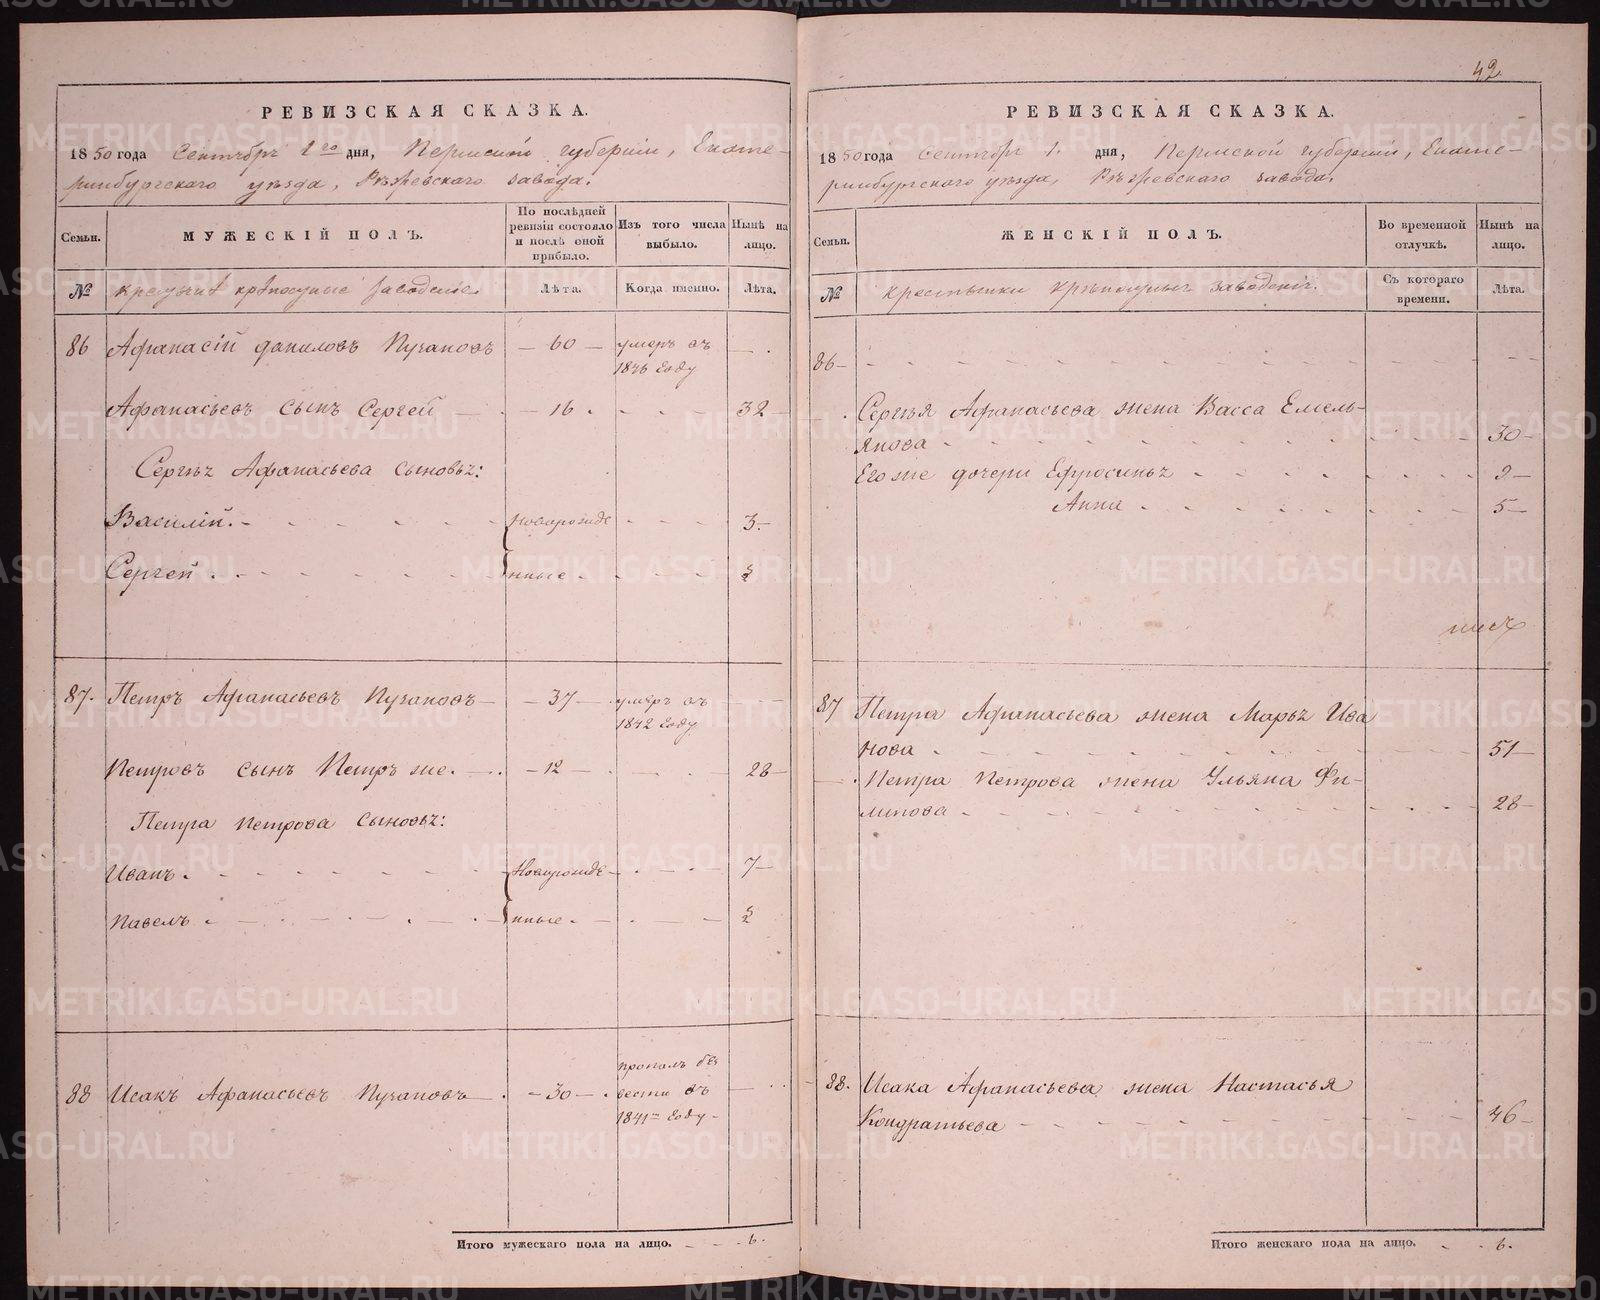 42
РЕВИЗСКАЯ СКАЗКА.
1850 года Сентября 1го дня, Пермской губернiи, Екате-
ринбургского уѣзда, Рѣжевского завода.
Семьи.
МУЖЕСКIЙ ПОЛЪ.
По послѣдней
ревизiи состояло
и послѣ оной
прибыло.
Изъ того числа
выбыло.
Нынѣ на
лицо.
№
крѣпосные Заводскiе.
Лѣта.
Когда именно.
Лѣта.
86 Афанасiй даниловъ Пузановъ — 60 — умеръ въ
1846 Году
Афанасьевъ сынъ Сергей — 16. 32
Сергѣя Афанасьева сыновья:
Василiй. Новорожде 3
Сергей нные 2
87. Петръ Афанасьевъ Пузановъ — 37 — умеръ въ
1842 Году
Петровъ сынъ Петръ же. — 12 — 28
Петра Петрова сыновья:
Иванъ. Новорожде 7
Павелъ нные 2
88 Исакъ Афанасьевъ Пузановъ — 30 — пропалъ бѣз
вести въ
1841м Году
Итого мужескаго пола на лицо. 6.
РЕВИЗСКАЯ СКАЗКА.
1850 года Сентября 1. дня, Пермской губернiи, Екате-
ринбургского уѣзда, Рѣжевского завода.
Семьи.
ЖЕНСКIЙ ПОЛЪ.
Во временной
отлучкѣ.
Нынѣ на
лицо.
№
крестьянки крѣпосныя заводскiя.
Съ котораго
времени.
Лѣта.
86
Сергѣя Афанасьева жена Васса Емель-
янова 30
Его же дочери Ефросинья 9
Анна 5
87 Петра Афанасьева жена Марья Ива
нова 51
Петра Петрова жена Ульяна Фи-
липова 28
88. Исака Афанасьева жена Настасья
Кондратьева 46
Итого женскаго пола на лицо. 6.
METRIKI.GASO-URAL.RU